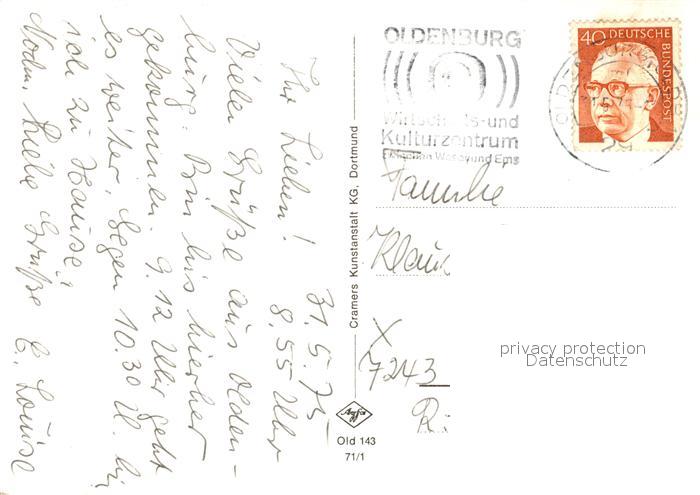 31.5.75
8.55 Uhr
Ihr Lieben!
Viele Grüße aus Olden-
burg. Bin bis hierher
gekommen. 9.12 Uhr geht
es weiter, gegen 10.30 U. bin
ich zu Hause.
Nochm. liebe Grüße E. Louise
Cramers Kunstanstalt KG, Dortmund
Agfa
Old 143
71/1
OLDENBURG
Wirtschafts-und
Kulturzentrum
zwischen Weser und Ems
40 DEUTSCHE
BUNDESPOST
Familie
Klaus
X
7243
privacy protection
Datenschutz